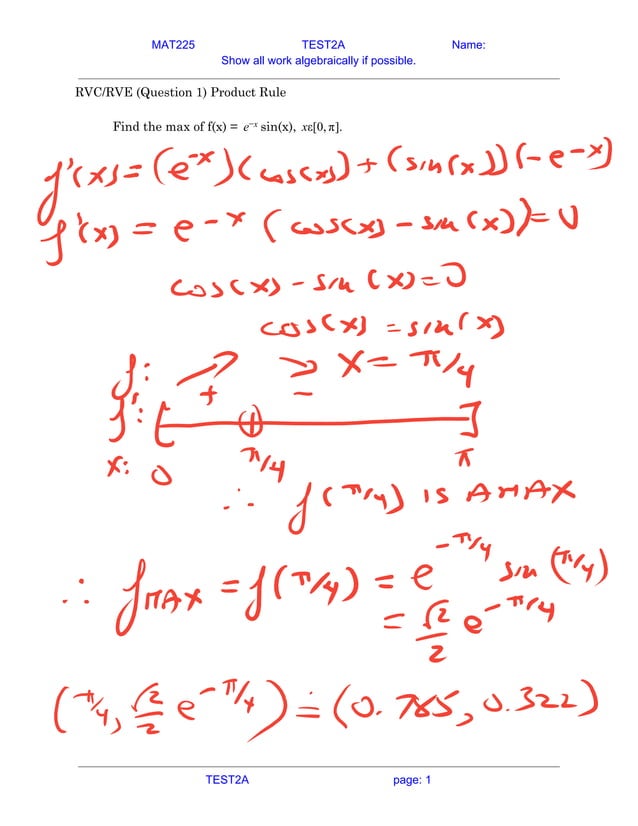 MAT225 TEST2A Name:
Show all work algebraically if possible.
RVC/RVE (Question 1) Product Rule
Find the max of f(x) = e⁻ˣ sin(x), xε[0, π].
f'(x) = (e^-x)(cos(x)) + (sin(x))(-e^-x)
f'(x) = e^-x (cos(x) - sin(x)) = 0
cos(x) - sin(x) = 0
cos(x) = sin(x)
f: ↗ ↘ x = π/4
f': [ + -  ]
x: 0 π/4 π
∴ f(π/4) IS A MAX
∴ fMAX = f(π/4) = e^-π/4 sin(π/4)
= √2/2 e^-π/4
(π/4, √2/2 e^-π/4) ≐ (0.785, 0.322)
TEST2A page: 1